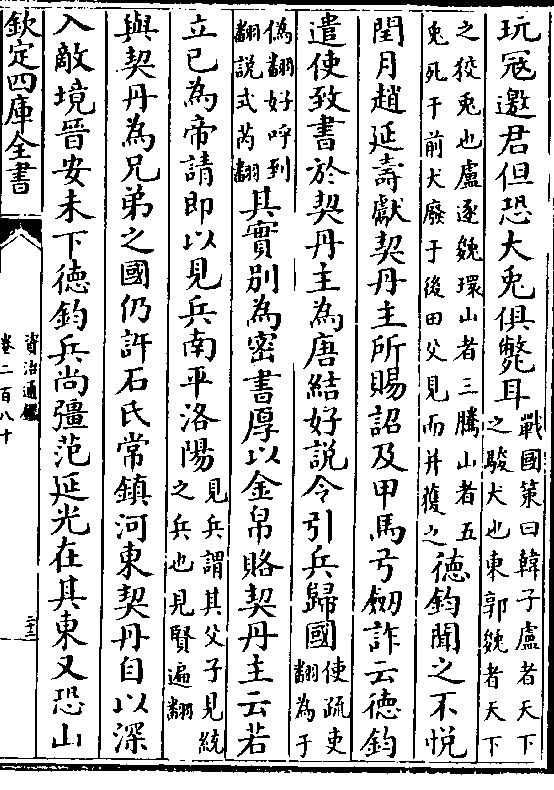 玩寇邀君但恐大兔俱斃耳戰國策曰韓子盧者天下
之駿犬也東郭㕙者天下
之狡兔也盧逐㕙環山者三騰山者五
兔死于前犬廢于後田父見而并獲之德鈞聞之不悅
閏月趙延壽獻契丹主所賜詔及甲馬弓劒詐云德鈞
遣使致書於契丹主為唐結好說令引兵歸國使疏吏
翻為于
偽翻好呼到
翻說式芮翻其實別為密書厚以金帛賂契丹主云若
立已為帝請即以見兵南平洛陽見兵謂其父子見統
之兵也見賢遍翻
與契丹為兄弟之國仍許石氏常鎮河東契丹自以深
入敵境晉安未下德鈞兵尚彊范延光在其東又恐山
欽定四庫全書
資治通鑑
卷二百八十